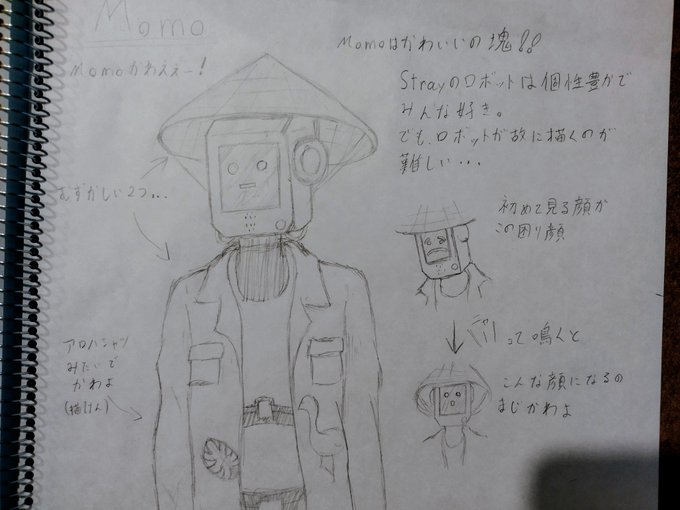 Momo
Momoかわええー!
Momoはかわいいの塊!!
Strayのロボットは個性豊かで
みんな好き。
でも、ロボットが故に描くのが
難しい・・・
むずかしい2つ...
初めて見る顔が
この困り顔
ニャー
って鳴くと
こんな顔になるの
まじかわよ
アロハシャツ
みたいで
かわよ
(描けん)